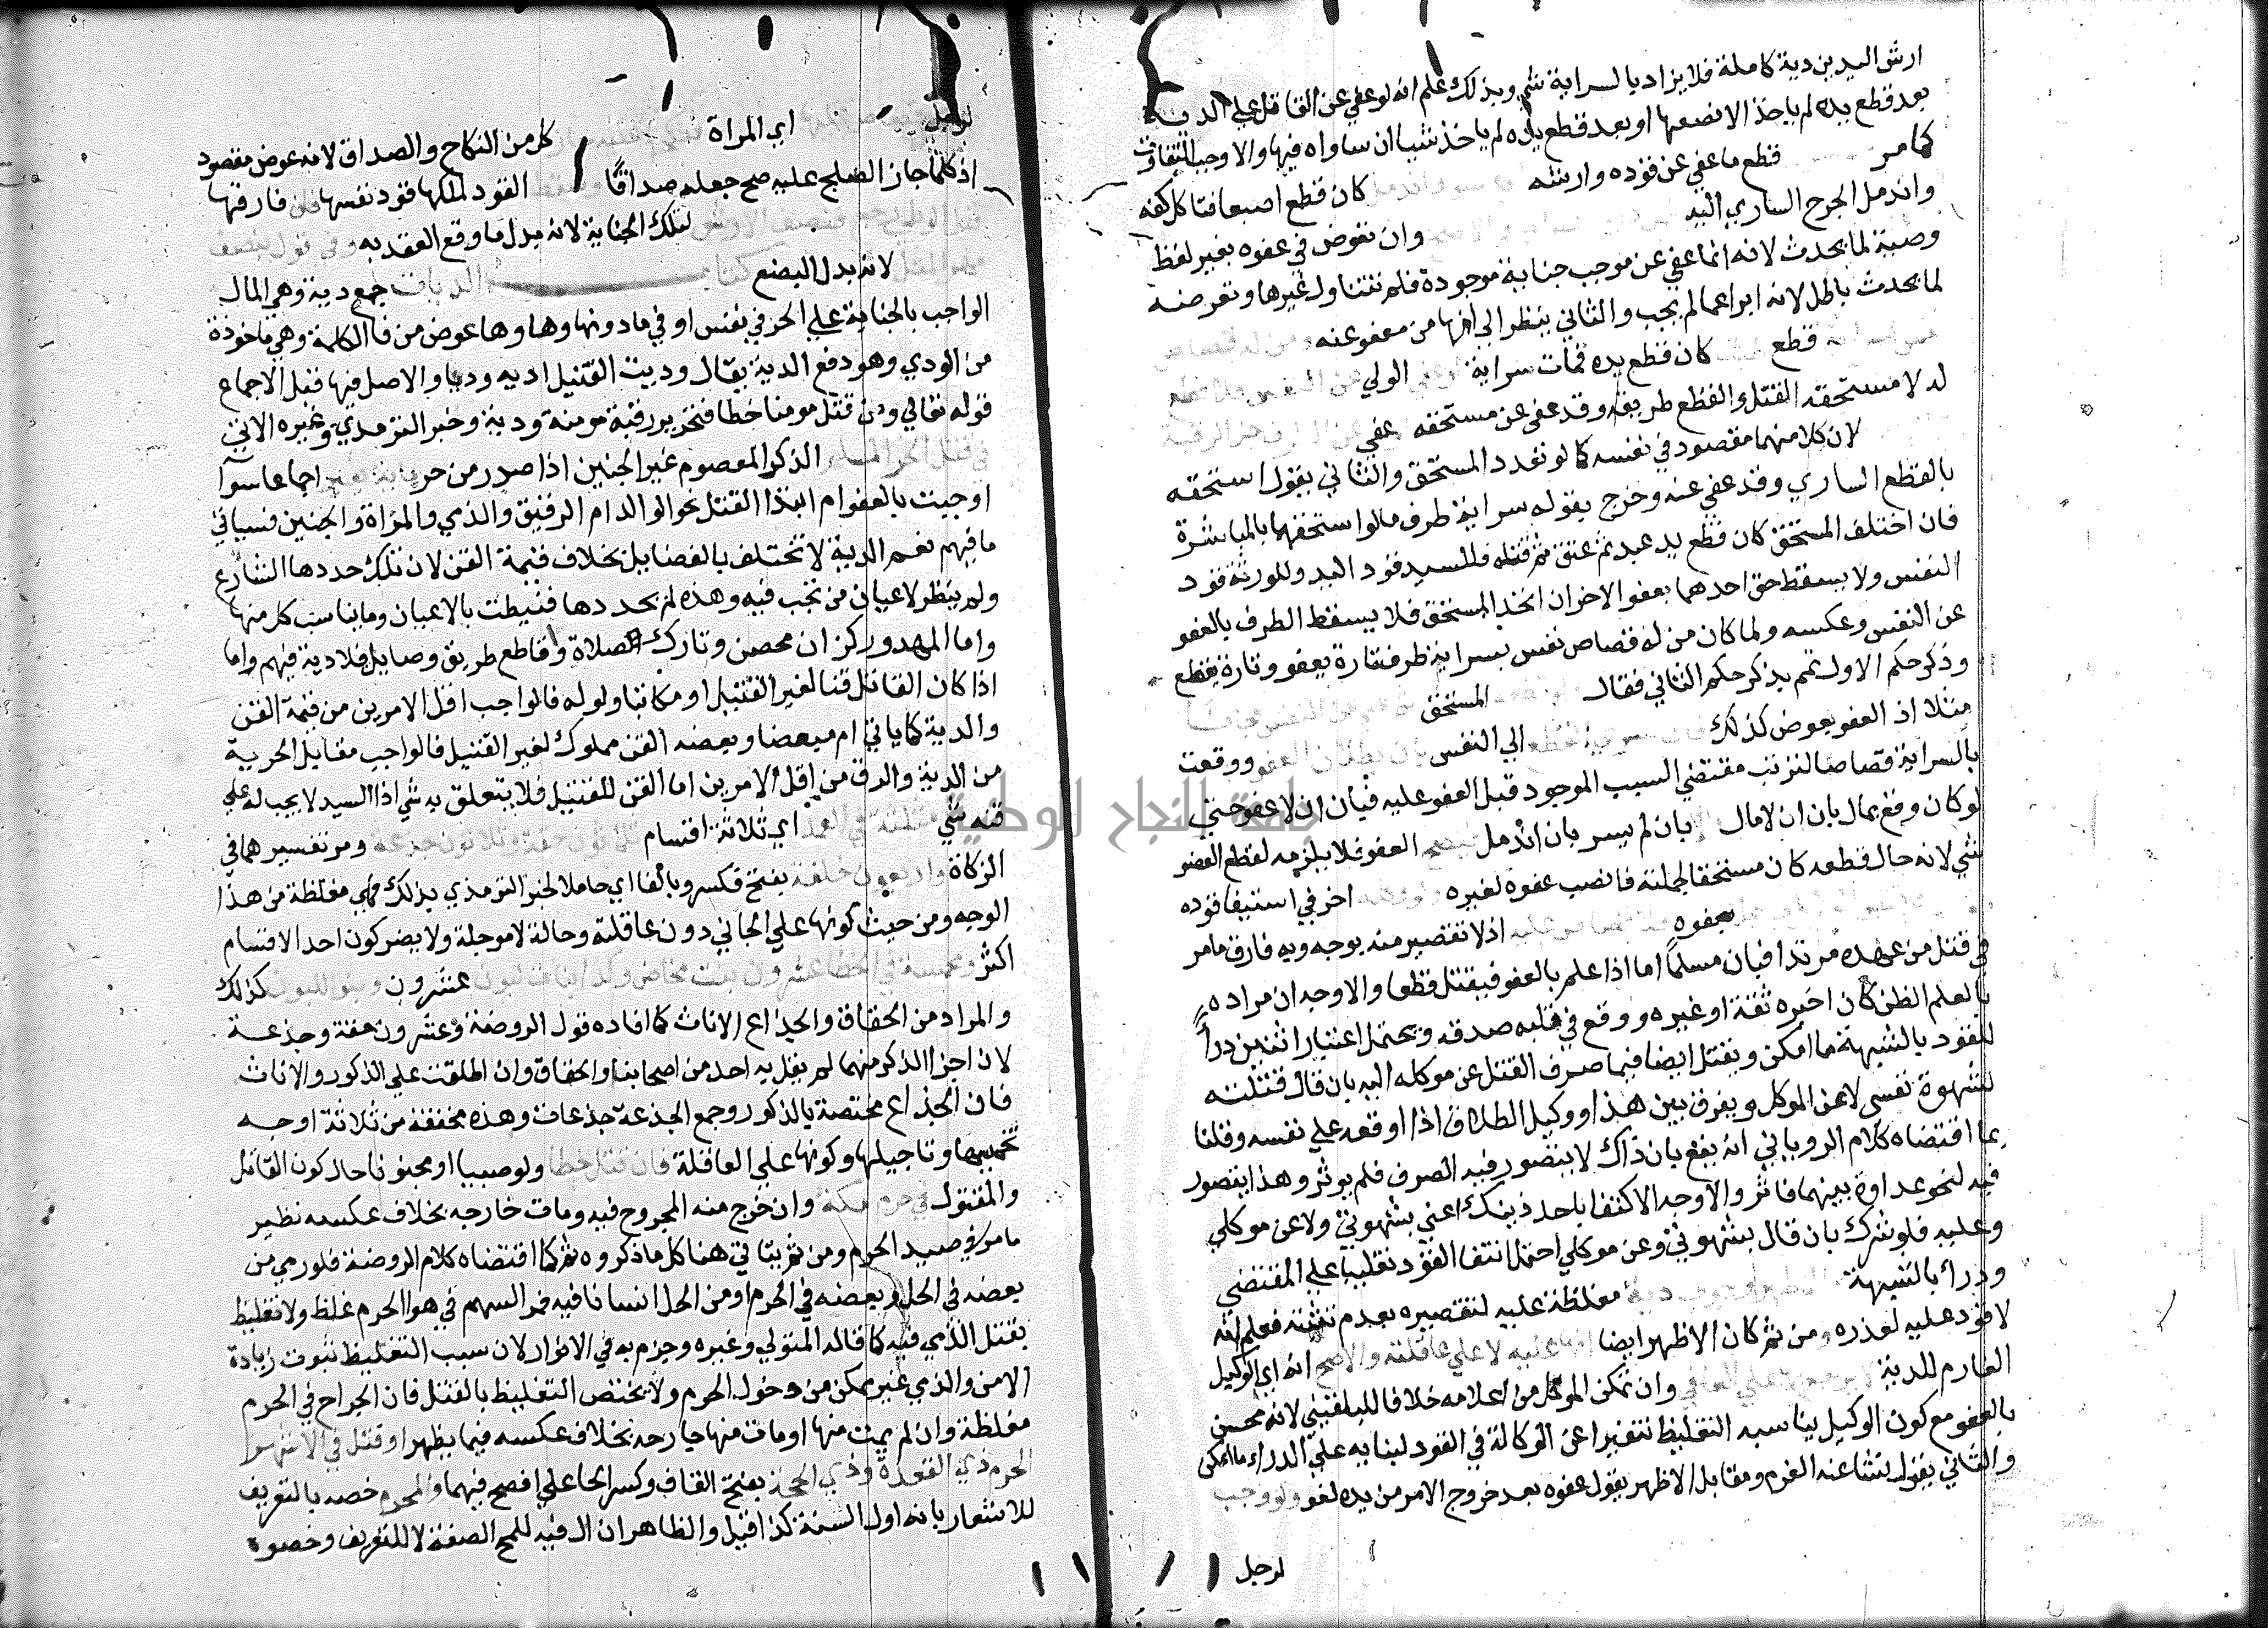 ارش اليدين دية كاملة فلا يزاد بالسراية شي وبذلك علم انه لو عفي عن القاتل علي الدية
بعد قطع يده لم ياخذ الا نصفها او بعد قطع يديه لم ياخذ شيا ان ساواه فيها والا وجب التفاوت
كما مر قطع ما عفي عن قوده وارشه كان قطع اصبعا فتاكل كفه
واندمل الجرح الساري اليد وان تعرض في عفوه بغير لفظ
وصية لما يحدث لانه انما عفي عن موجب جناية موجودة فلم تتناول غيرها وتعرضه
لما يحدث باطل لانه ابرا عما لم يجب والثاني ينظر الي انها من معفو عنه ومن له قصاص
قطع كان قطع يده فمات سراية الولي عن النفس فلا قطع
له لا مستحقه القتل والقطع طريقه وقد عفي عن مستحقه عفي
لان كلا منهما مقصود في نفسه كما لو تعدد المستحق والثاني يقول استحقه
بالقطع الساري وقد عفي عنه وخرج بقوله سراية طرف ما لو استحقها بالمباشرة
فان اختلف المستحق كان قطع يد عبد ثم عتق ثم قتله فللسيد قود اليد وللورثة قود
النفس ولا يسقط حق احدهما بعفو الاخر ان اتحد المستحق فلا يسقط الطرف بالعفو
عن النفس وعكسه ولما كان من له قصاص نفس بسراية طرف تارة يعفو وتارة يقطع
وذكر حكم الاول تمم بذكر حكم الثاني فقال المستحق
مثلا اذ العفو بعوض كذلك الي النفس بان بطلان العفو ووقعت
بالسراية قصاصا لترتب مقتضي السبب الموجود قبل العفو عليه فبان ان لا عفو حتي
لو كان وقع بمال بان ان لا مال بان لم يسر بان اندمل العفو فلا يلزمه لقطع العضو
شي لانه حال قطعه كان مستحقا لجملته فانصب عفوه لغيره اخر في استيفا قوده
بعفوه اذ لا تقصير منه بوجه وبه فارق ما مر
في قتل من عهده مرتدا فبان مسلما اما اذا علم بالعفو فيقتل قطعا والاوجه ان مراده
بالعلم الظن كان اخبره ثقة او غيره ووقع في قلبه صدقه ويحتمل اعتبار اثنين درأ
للقود بالشبهة ما امكن ويقتل ايضا فيما صرف القتل عن موكله اليه بان قال قتلته
لشهوة نفسي لا عن الموكل ويفرق بين هذا ووكيل الطلاق اذا اوقعه علي نفسه وقلنا
بما اقتضاه كلام الروياني انه يقع بان ذاك لا يتصور فيه الصرف فلم يوثر وهذا يتصور
فيه لنحو عداوة بينهما فاثر والاوجه الاكتفا باحد ذينك اعني بشهوتي ولا عن موكلي
وعليه فلو شرك بان قال بشهوتي وعن موكلي احتمل انتفا القود تغليبا علي المقتضي
ودرأ بالشبهة دية مغلظة عليه لتقصيره بعدم تثبته فعلم انه
لا قود عليه لعذره ومن ثم كان الاظهر ايضا انها عليه لا علي عاقلته والاصح انه اي الوكيل
الغارم للدية علي العافي وان تمكن الموكل من اعلامه خلافا للبلقيني لانه محسن
بالعفو مع كون الوكيل يناسبه التغليظ تنفيرا عن الوكالة في القود لبنايه علي الدراء ما امكن
والثاني يقول نشا عنه الغرم ومقابل الاظهر يقول عفوه بعد خروج الامر من يده لغو ولو وجب
لرجل
لرجل اي المراة كل من النكاح والصداق لانه عوض مقصود
اذ كلما جاز الصلح عليه صح جعله صداقا القود لملكها قود نفسها فان فارقها
قبل الوطي رجع بنصف الارش لتلك الجناية لانه بدل ما وقع العقد به وفي قول بنصف
مهر المثل لانه بدل البضع كتاب الديات جمع دية وهي المال
الواجب بالجناية علي الحر في نفس او في ما دونها وهاوها عوض من فا الكلمة وهي ماخوذة
من الودي وهو دفع الدية يقال وديت القتيل اديه وديا والاصل فيها قبل الاجماع
قوله تعالي ومن قتل مومنا خطا فتحرير رقبة مومنة ودية وخبر الترمذي وغيره الاتي
في قتل الحر المسلم الذكر المعصوم غير الجنين اذا صدر من حر مائة بعير اجماعا سوآ
اوجبت بالعفو ام ابتدا القتل نحو الوالد ام الرقيق والذمي والمراة والجنين فسياتي
ما فيهم نعم الدية لا تختلف بالفضايل بخلاف قيمة القن لان تلك حددها الشارع
ولم ينظر لاعيان من تجب فيه وهذه لم يحددها فنيطت بالاعيان وما يناسب كل منها
واما المهدور كزان محصن وتارك الصلاة وقاطع طريق وصايل فلا دية فيهم واما
اذا كان القاتل قنا لغير القتيل او مكاتبا ولو له فالواجب اقل الامرين من قيمة القن
والدية كما ياتي ام مبعضا وبعضه القن مملوك لغير القتيل فالواجب مقابل الحرية
من الدية والرق من اقل الامرين اما القن للقتيل فلا يتعلق به شي اذ السيد لا يجب له علي
قنه شي مثلثة في العمد اي ثلاثة اقسام ثلاثون حقة وثلاثون جذعة ومر تفسيرهما في
الزكاة واربعون خلفة بفتح فكسر وبالفا اي حاملا لخبر الترمذي بذلك فهي مغلظة من هذا
الوجه ومن حيث كونها علي الجاني دون عاقلته وحالة لا موجلة ولا يضر كون احد الاقسام
اكثر ومخمسة في الخطا عشرون بنت مخاض وكذا بنات لبون عشرون وبنو اللبون كذلك
والمراد من الحقاق والجذاع الاناث كما افاده قول الروضة وعشرون حقة وجذعة
لان اجزا الذكر منهما لم يقل به احد من اصحابنا والحقاق وان اطلقت علي الذكور والاناث
فان الجذاع مختصة بالذكور وجمع الجذعة جذعات وهذه مخففة من ثلاثة اوجه
تخميسها وتاجيلها وكونها علي العاقلة فان قتل خطا ولو صبيا او مجنونا حال كون القاتل
والمقتول في حرم مكة وان خرج منه المجروح فيه ومات خارجه بخلاف عكسه نظير
ما مر في صيد الحرم ومن ثم ياتي هنا كل ما ذكروه ثم كما اقتضاه كلام الروضة فلو رمي من
بعضه في الحل وبعضه في الحرم او من الحل انسانا فيه فمر السهم في هوا الحرم غلظ ولا تغليظ
بقتل الذمي فيه كما قاله المتولي وغيره وجزم به في الانوار لان سبب التغليظ ثبوت زيادة
الامن والذمي غير ممكن من دخول الحرم ولا يختص التغليظ بالقتل فان الجراح في الحرم
مغلظة وان لم يمت منها او مات منها خارجه بخلاف عكسه فيما يظهر او قتل في الاشهر
الحرم ذي القعدة وذي الحجة بفتح القاف وكسر الحا علي افصح فيهما والمحرم خصه بالتعريف
للاشعار بانه اول السنة كذا قيل والظاهر ان ال فيه للمح الصفة لا للتعريف وخصو
جامعة النجاح الوطنية